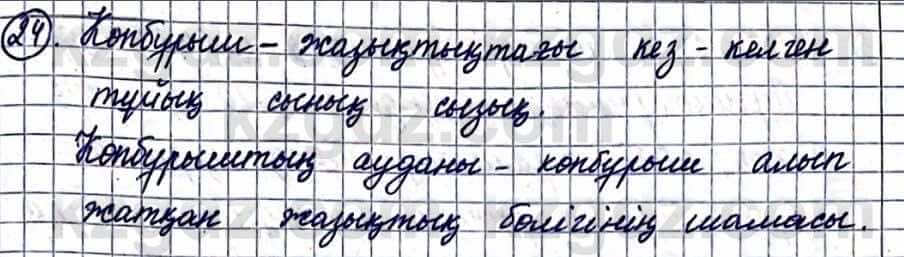 24. Көпбұрыш – жазықтықтағы кез - келген
тұйық сынық сызық.
Көпбұрыштың ауданы – көпбұрыш алып
жатқан жазықтық бөлігінің шамасы.